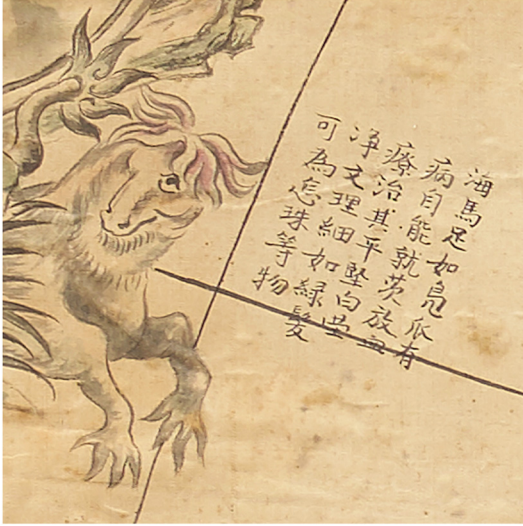 海馬足如鳧瓜有
病自能就茨放血
療治其平堅白瑩
浄文理細如緑髮
可為怎珠等物